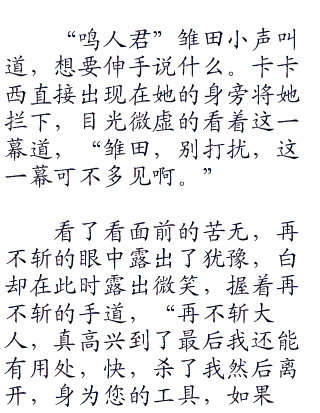 “鸣人君”雏田小声叫
道，想要伸手说什么。卡卡
西直接出现在她的身旁将她
拦下，目光微虚的看着这一
幕道，“雏田，别打扰，这
一幕可不多见啊。”
看了看面前的苦无，再
不斩的眼中露出了犹豫，白
却在此时露出微笑，握着再
不斩的手道，“再不斩大
人，真高兴到了最后我还能
有用处，快，杀了我然后离
开，身为您的工具，如果